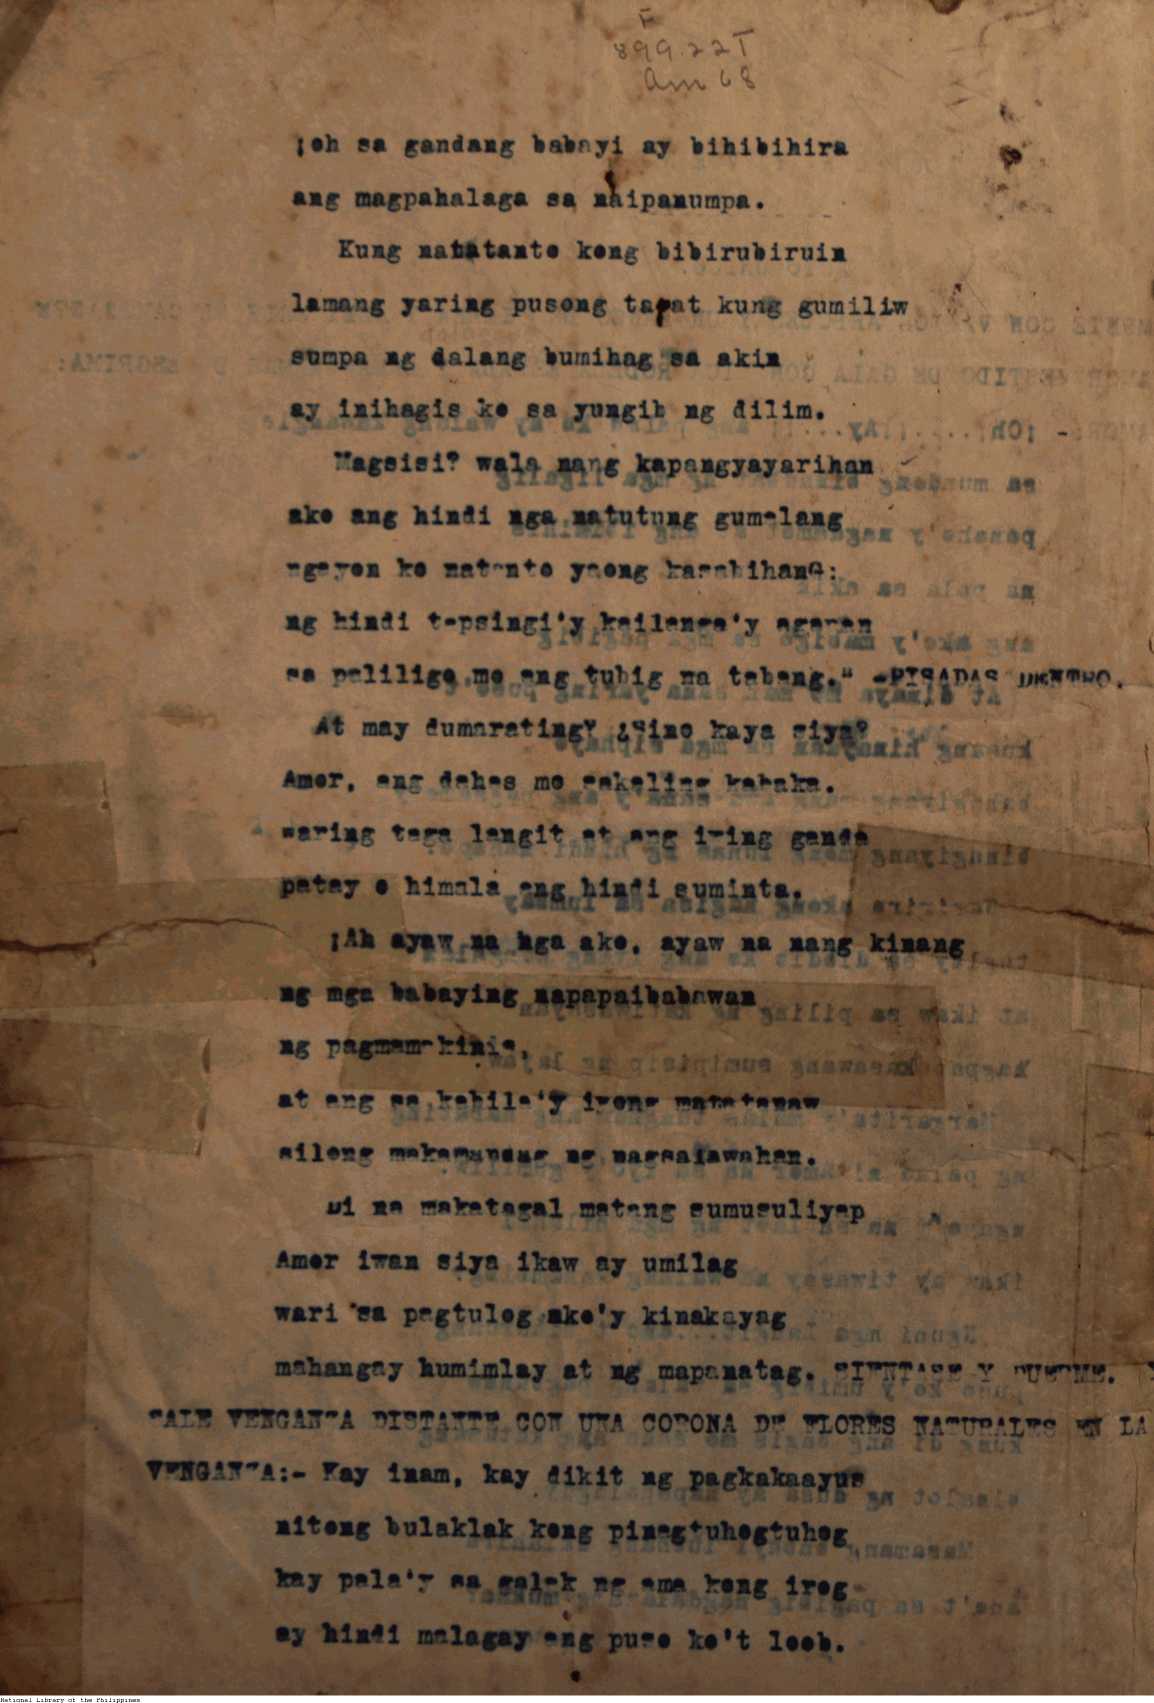 F
899.22T
Am 68
¡oh sa gandang babayi ay bihibihira
ang magpahalaga sa naipanumpa.
Kung natatanto kong bibirubiruin
lamang yaring pusong tapat kung gumiliw
sumpa ng dalang bumihag sa akin
ay inihagis ko sa yungib ng dilim.
Magsisi? wala nang kapangyayarihan
ako ang hindi nga natutung gumalang
ngayon ko natanto yaong kasabihang:
ng hindi tapsingi'y kailanga'y agapan
sa paliligo mo ang tubig na tabang." -PISADAS DENTRO.
At may dumarating? ¿Sino kaya siya?
Amor, ang dahas mo sakaling kabaka.
waring taga langit at ang iying ganda
patay o himala ang hindi suminta.
¡Ah ayaw na nga ako, ayaw na nang kinang
ng mga babaying napapaibabawan
ng pagmamakinis,
at ang sa kabila'y iyong matatanaw
silong makamandag ng
Di na makatagal matang sumusuliyap
Amor iwan siya ikaw ay umilag
wari sa pagtulog ako'y kinakayag
mahangay humimlay at ng mapanatag. SIENTASE Y DUERME.
SALE VENGANZA DISTANTE CON UNA CORONA DE FLORES NATURALES EN LA
VENGANZA:- Kay inam, kay dikit ng pagkakaayus
nitong bulaklak kong pinagtuhogtuhog
kay pala'y sa galak ng ama kong irog
ay hindi malagay ang puso ko't loob.
National Library of the Philippines